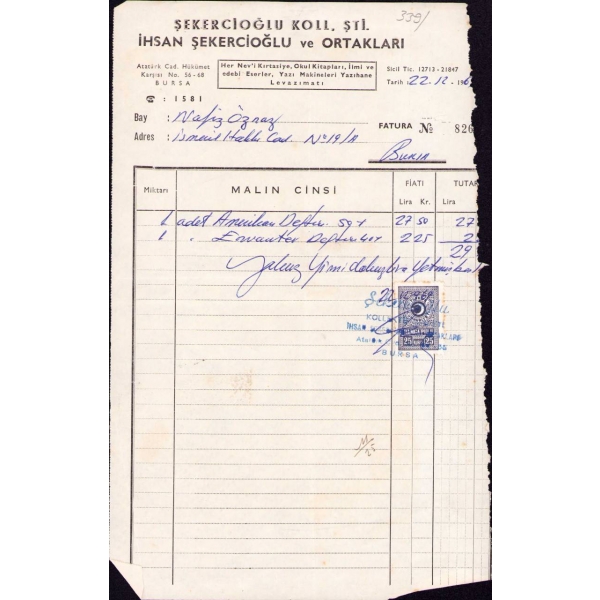 339/
ŞEKERCİOĞLU KOLL. ŞTİ.
İHSAN ŞEKERCİOĞLU ve ORTAKLARI
Atatürk Cad. Hükümet
Karşısı No. 56-68
BURSA
Her Nev'i Kırtasiye, Okul Kitapları, İlmi ve
edebi Eserler, Yazı Makineleri Yazıhane
Levazımatı
Sicil Tic. 12713 - 21847
Tarih : 22.12 - 196
☎ : 1581
Bay : Nafiz
Adres : İsmail Hakkı Cad. No 19/A
FATURA № 826
Bursa
Miktarı MALIN CİNSİ FİATI TUTAR
Lira Kr. Lira
1 adet Amerikan Defter 27 50 27
1 " Defter 2 25 2
29
Yalnız
KOLL
İHSAN
BURSA
25 25